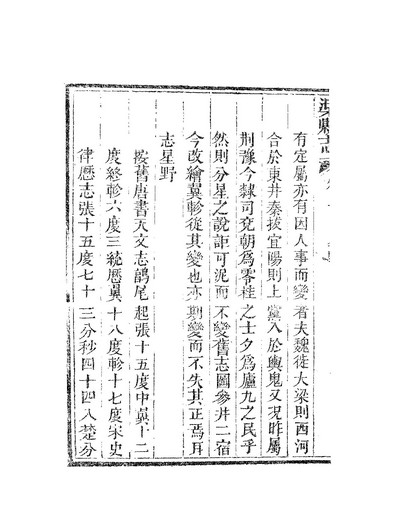 有定屬亦有因人事而變者夫魏徙大梁則西河
合於東井秦拔宜陽則上黨入於輿鬼又況昨屬
荆豫今隸司兗朝爲零桂之士夕爲廬九之民乎
然則分星之說詎可泥而不變舊志圖參井二宿
今改繪翼軫從其變也亦期變而不失其正焉耳
志星野
按舊唐書天文志鶉尾起張十五度中翼十二
度終軫六度三統曆翼十八度軫十七度宋史
律曆志張十五度七十三分秒四十四入楚分